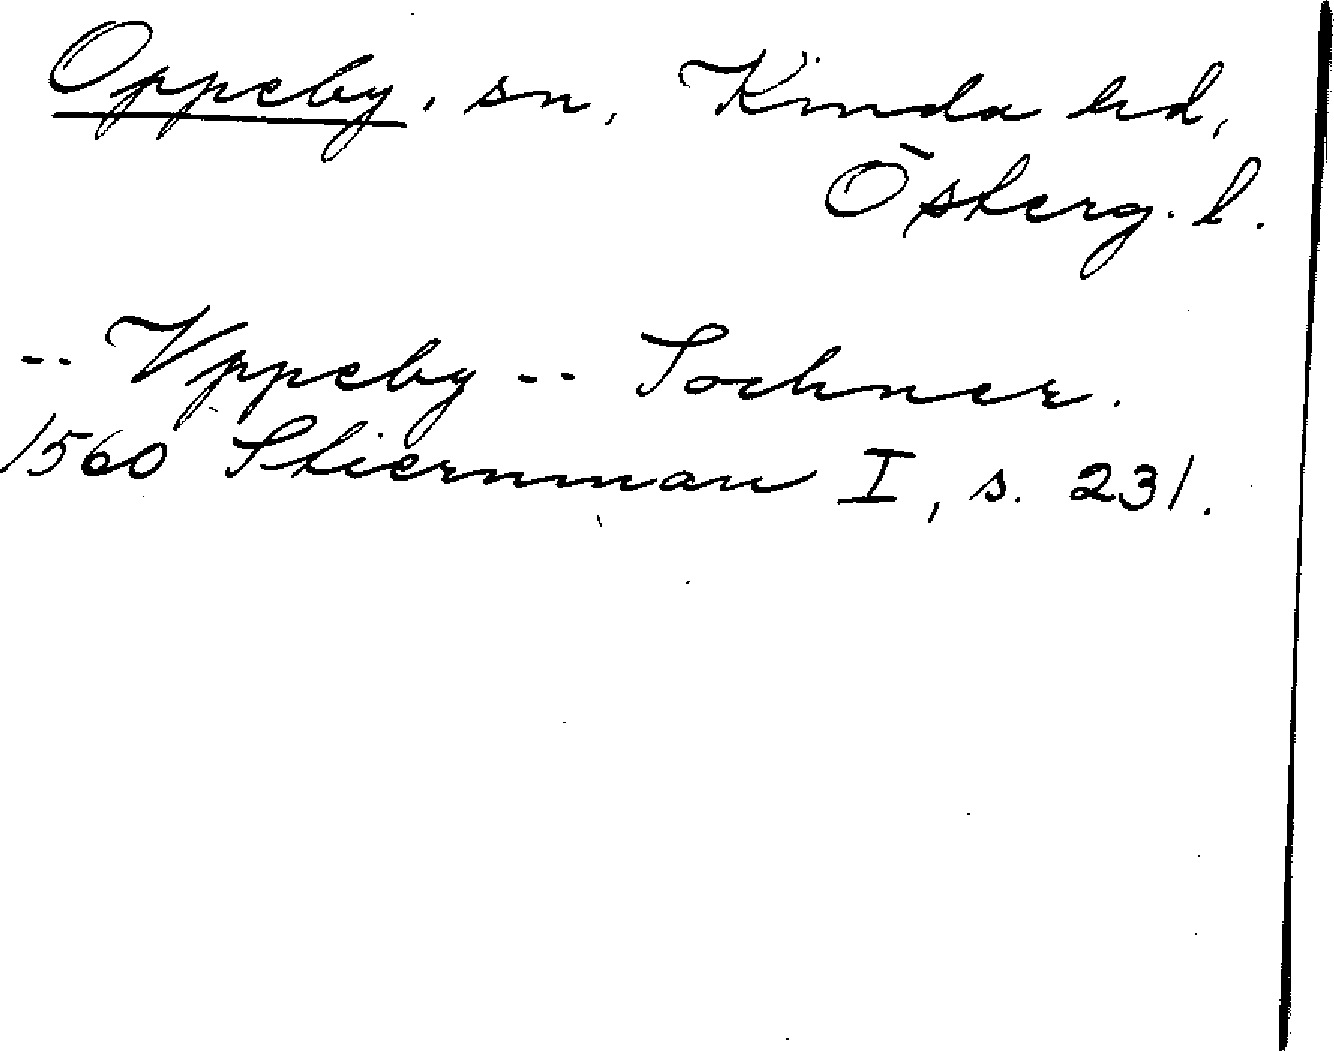 Oppeby, sn, Kinda hd,
Österg. l.
-- Vppeby -- Sochner.
1560 Stiernman I, s. 231.